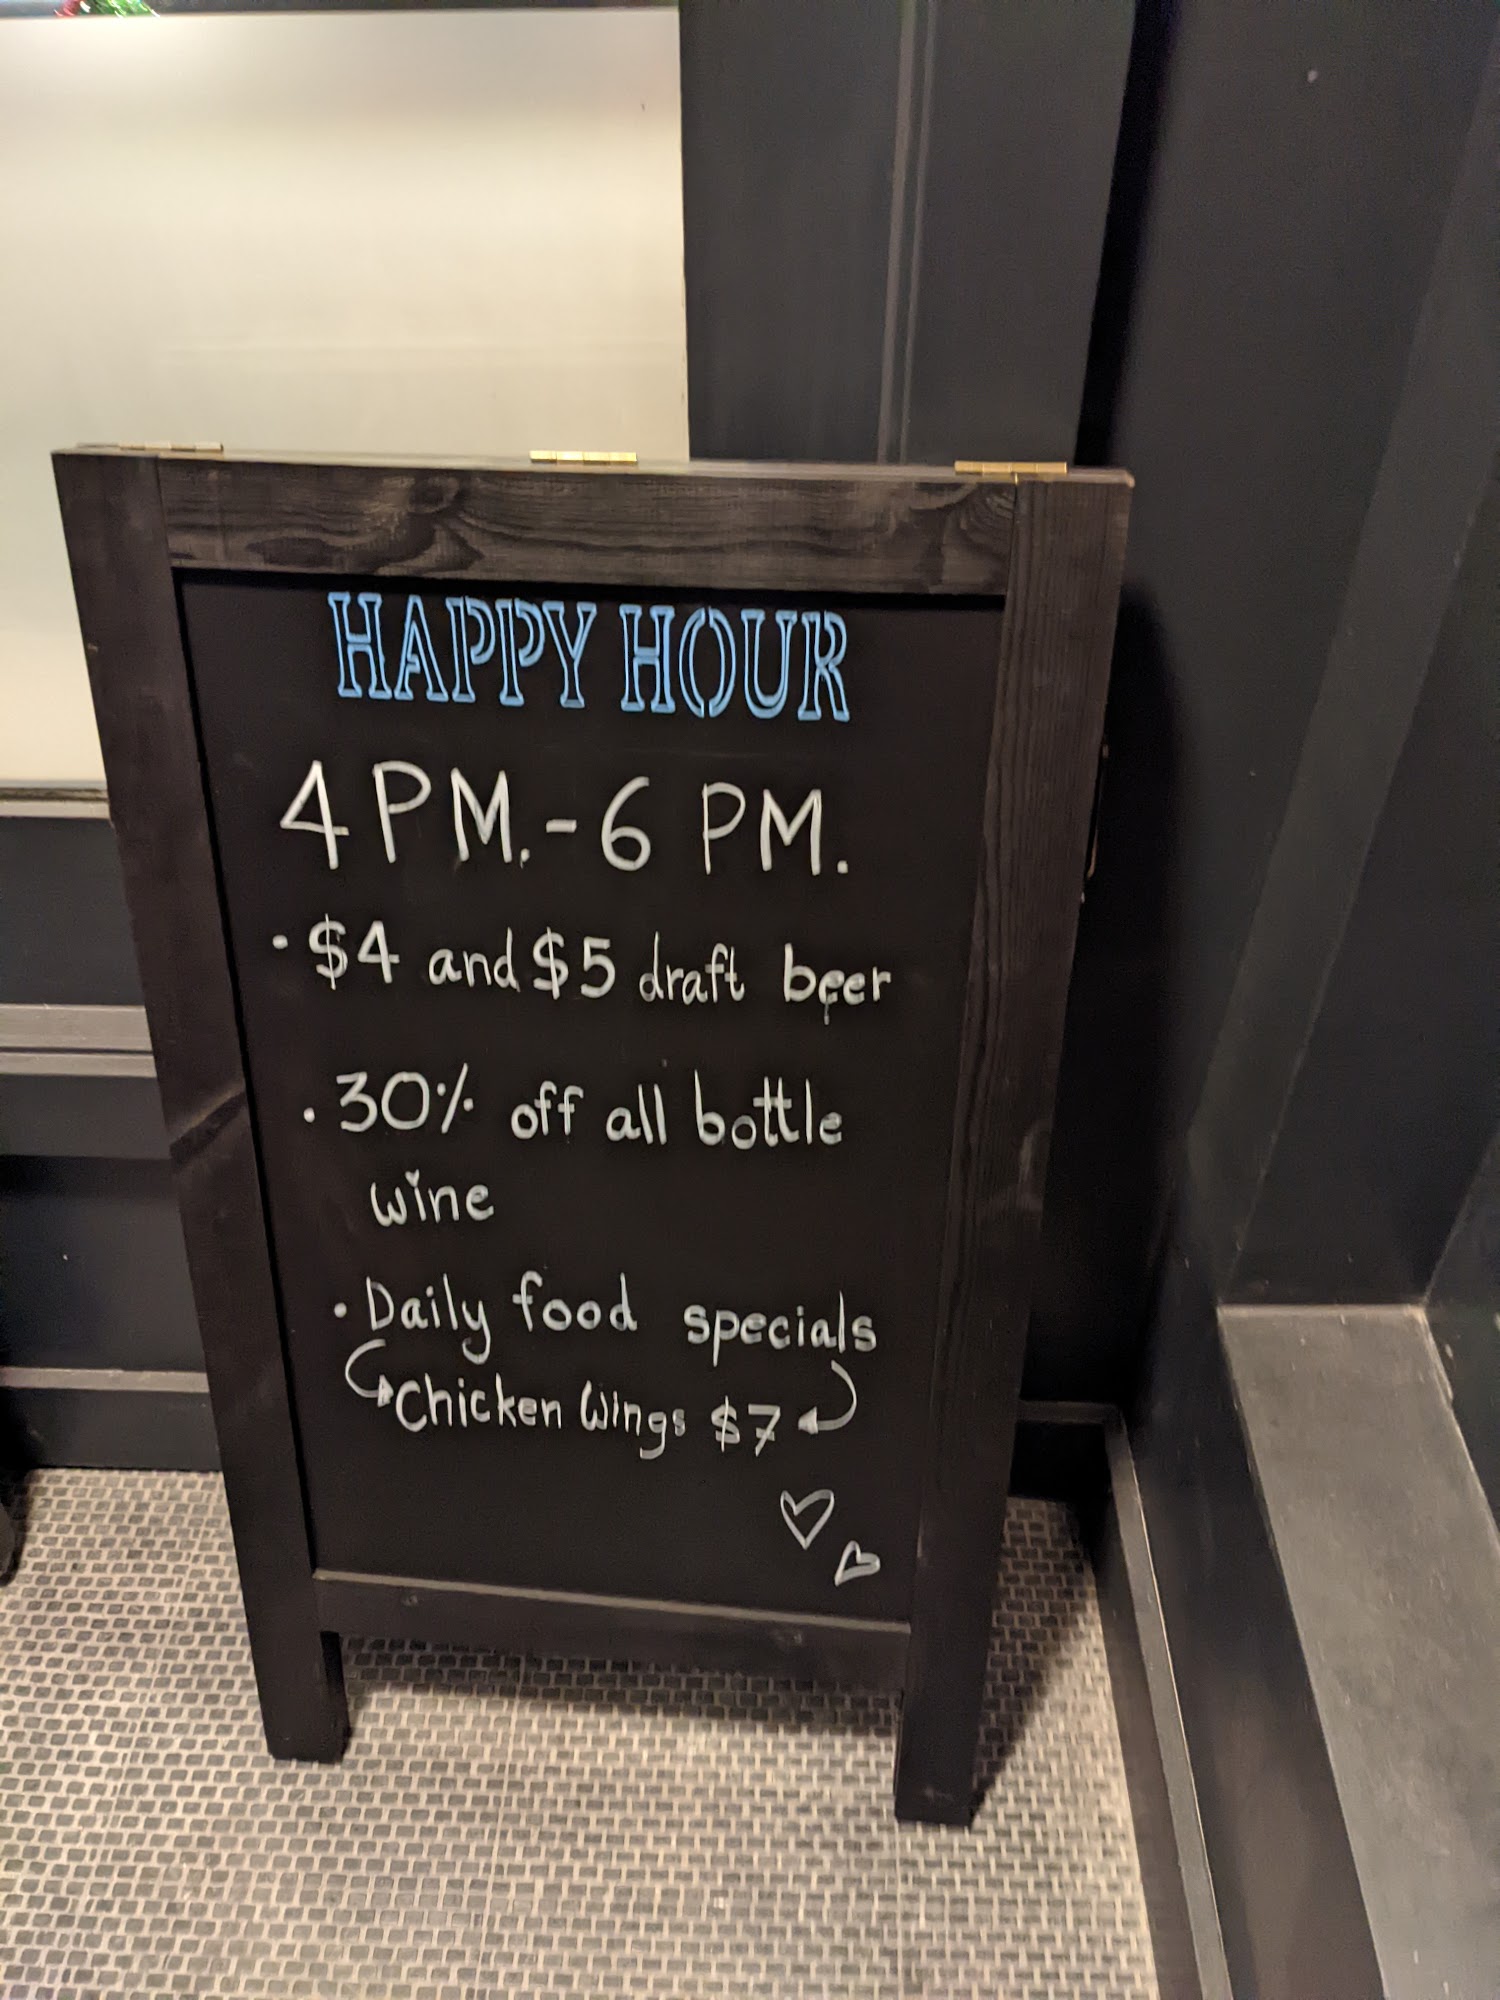 HAPPY HOUR
4 PM.-6 PM.
• $4 and $5 draft beer
• 30% off all bottle
wine
• Daily food specials
Chicken Wings $7